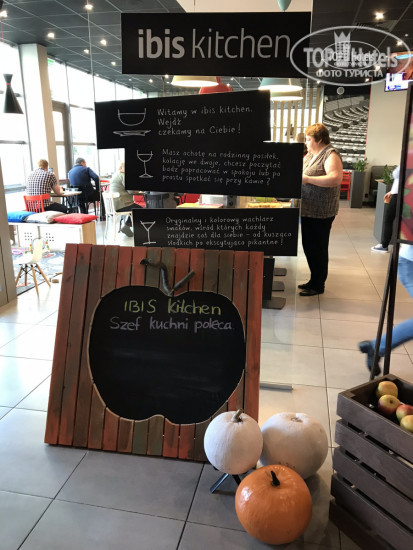 ibis kitchen
TOP Hotels
ФОТО ТУРИСТА
Witamy w ibis kitchen.
Wejdź
czekamy na Ciebie!
Masz ochotę na rodzinny posiłek,
kolację we dwoje, chcesz poczytać
bądź popracować w spokoju lub po
prostu spotkać się przy kawie?
Oryginalny i kolorowy wachlarz
smaków, wśród których każdy
znajdzie coś dla siebie - od kusząco
słodkich po ekscytująco pikantne!
IBIS kitchen
Szef kuchni poleca